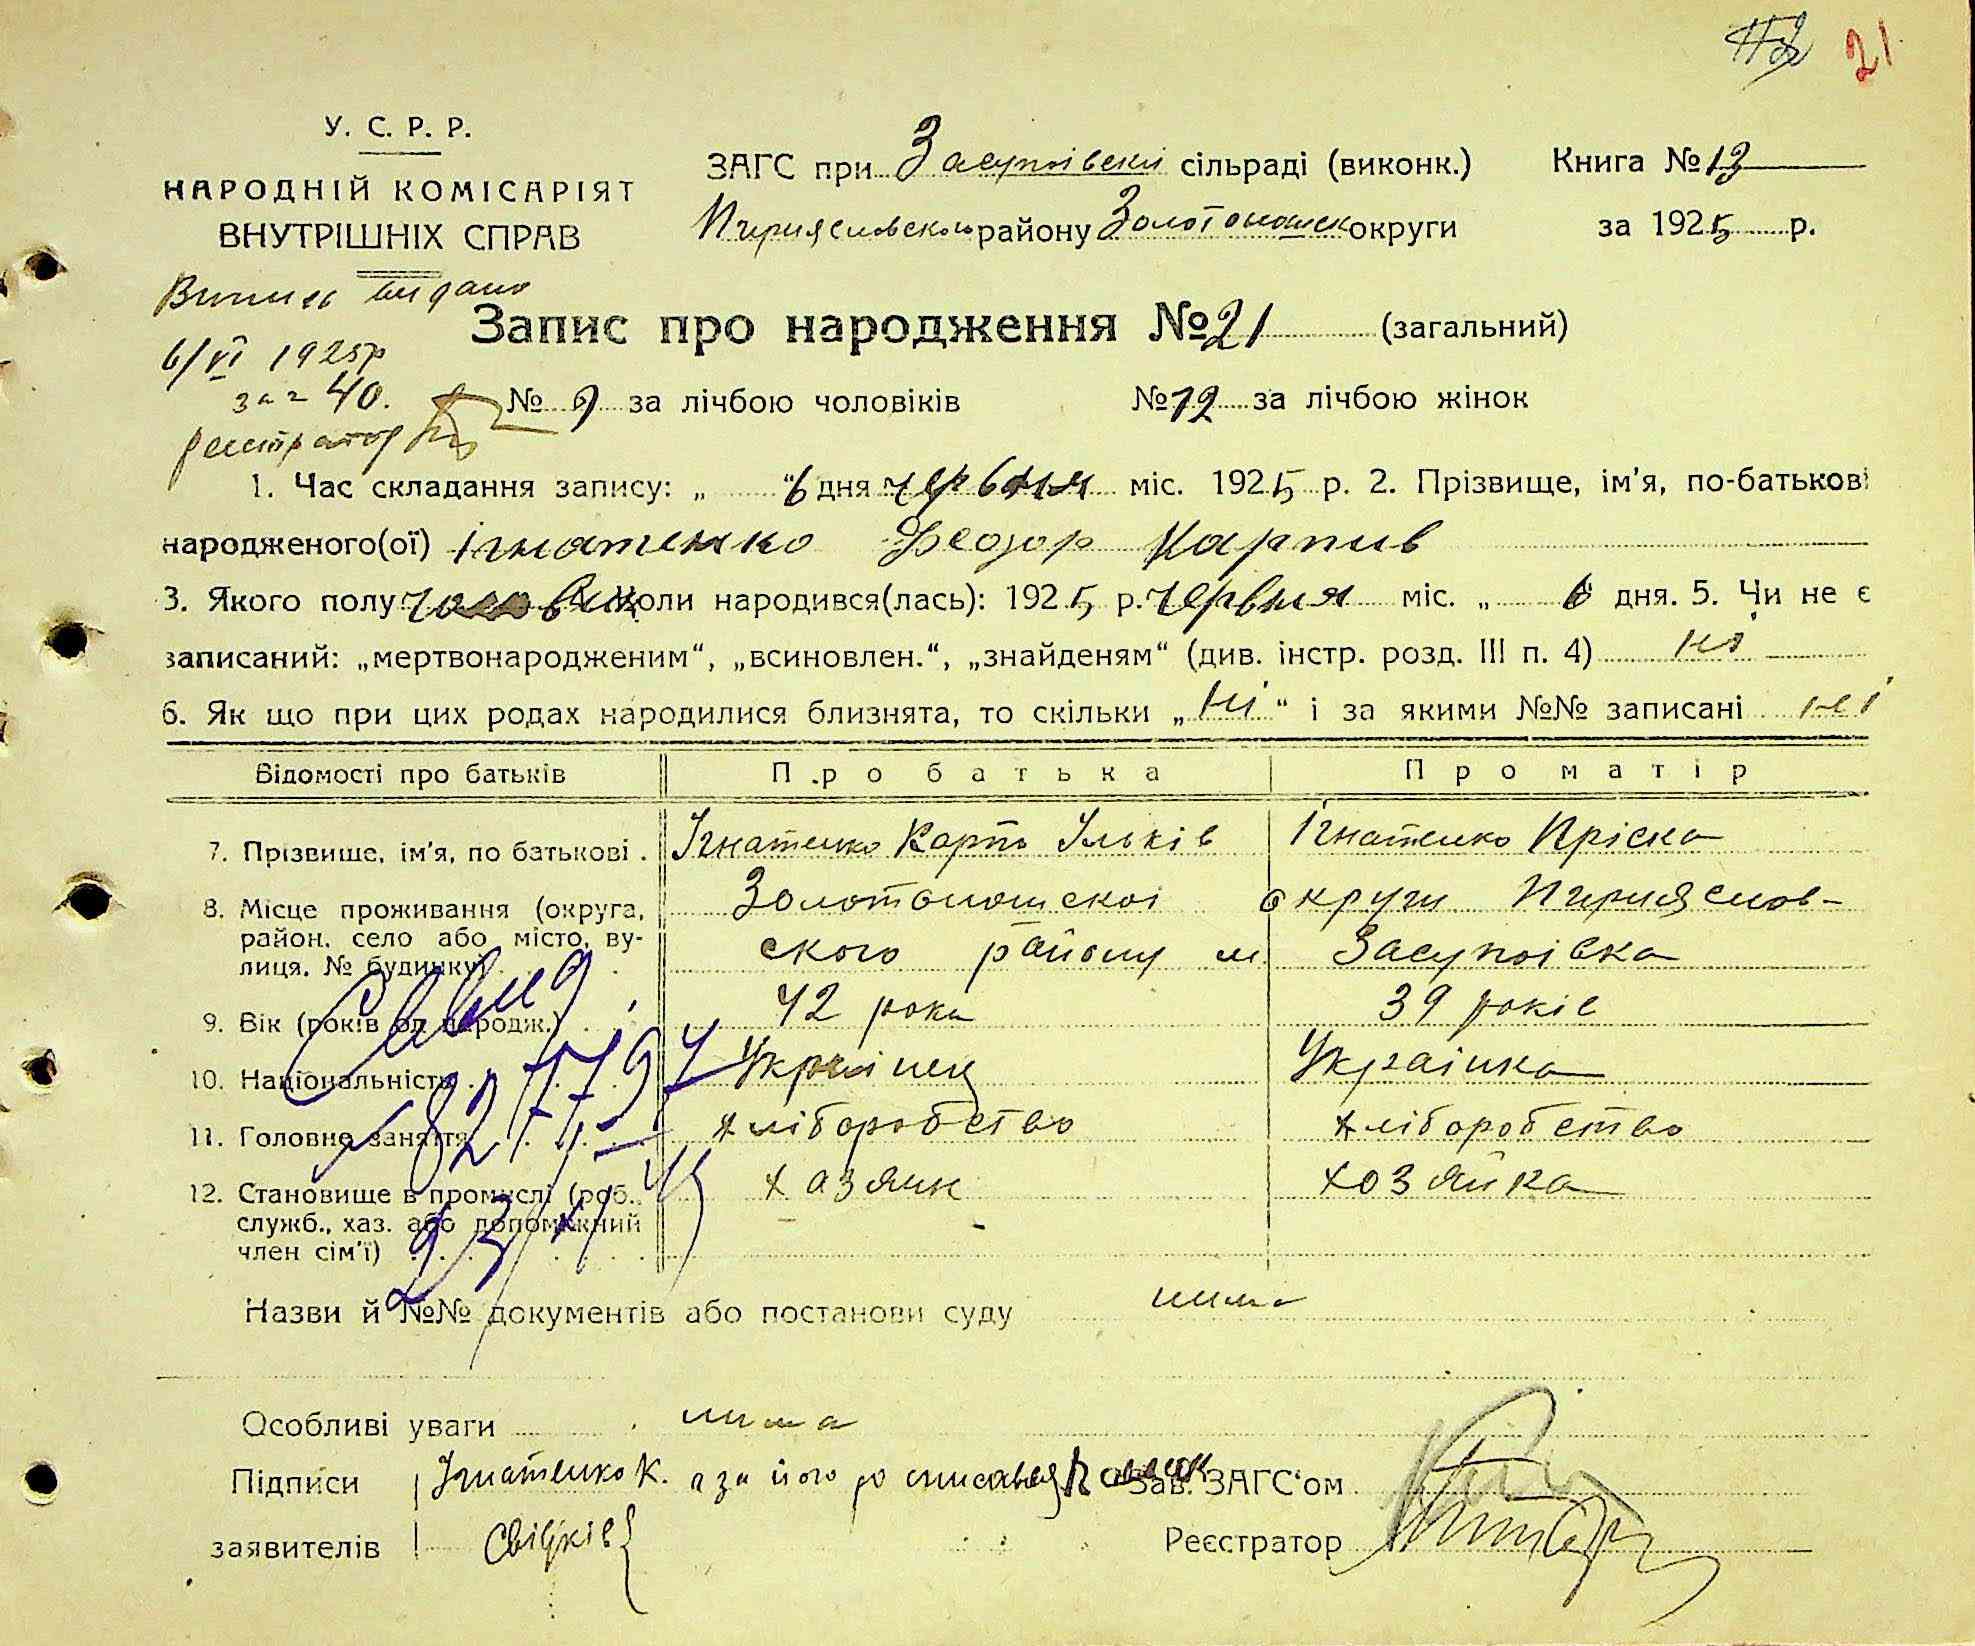 21
У. С. Р. Р.
НАРОДНІЙ КОМІСАРІЯТ
ВНУТРІШНІХ СПРАВ
ЗАГС при Засупоівскі сільраді (виконк.) Книга № 13
Пирияславского району Золотоношск округи за 1925 р.
Випись видано
6/VI 1925р
за № 40.
реєстратор
Запис про народження № 21 (загальний)
№ 9 за лічбою чоловіків № 12 за лічбою жінок
1. Час складання запису: „ 6 дня червня міс. 1925 р. 2. Прізвище, ім'я, по-батькові
народженого(ої) Ігнатенко Феодор Карпив
3. Якого полу чоловік Коли народився(лась): 1925 р. червня міс. „ 6 дня. 5. Чи не є
записаний: „мертвонародженим“, „всиновлен.“, „знайденям“ (див. інстр. розд. III п. 4) ні
6. Як що при цих родах народилися близнята, то скільки „ ні “ і за якими №№ записані ні
Відомості про батьків Про батька Про матір
7. Прізвище, ім'я, по батькові . Ігнатенко Карпо Ільків Ігнатенко Пріска
8. Місце проживання (округа, район, село або місто, вулиця, № будинку) Золотоношскоі округи Пирияслов-
ского району м. Засупоівка
9. Вік (років од народж.) 42 роки 39 років
10. Національність Украінец Украінка
11. Головне заняття хліборобство хліборобство
12. Становище в промислі (роб., служб., хаз. або допоміжний член сім'ї) хазяин хозяйка
827797
Назви й №№ документів або постанови суду нима
Особливі уваги нима
Підписи Ігнатенко К. а за його Зав. ЗАГС'ом
заявителів Свідків Реєстратор